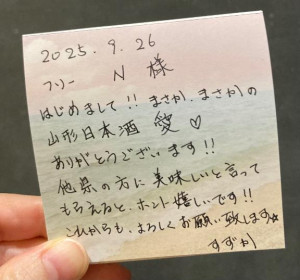 2025.9.26
フリー N 様
はじめまして!! まさか、まさかの
山形日本酒 愛♡
ありがとうございます!!
他県の方に美味しいと言って
もらえると、ホント嬉しいです!!
これからも、よろしくお願い致します☆
すずか